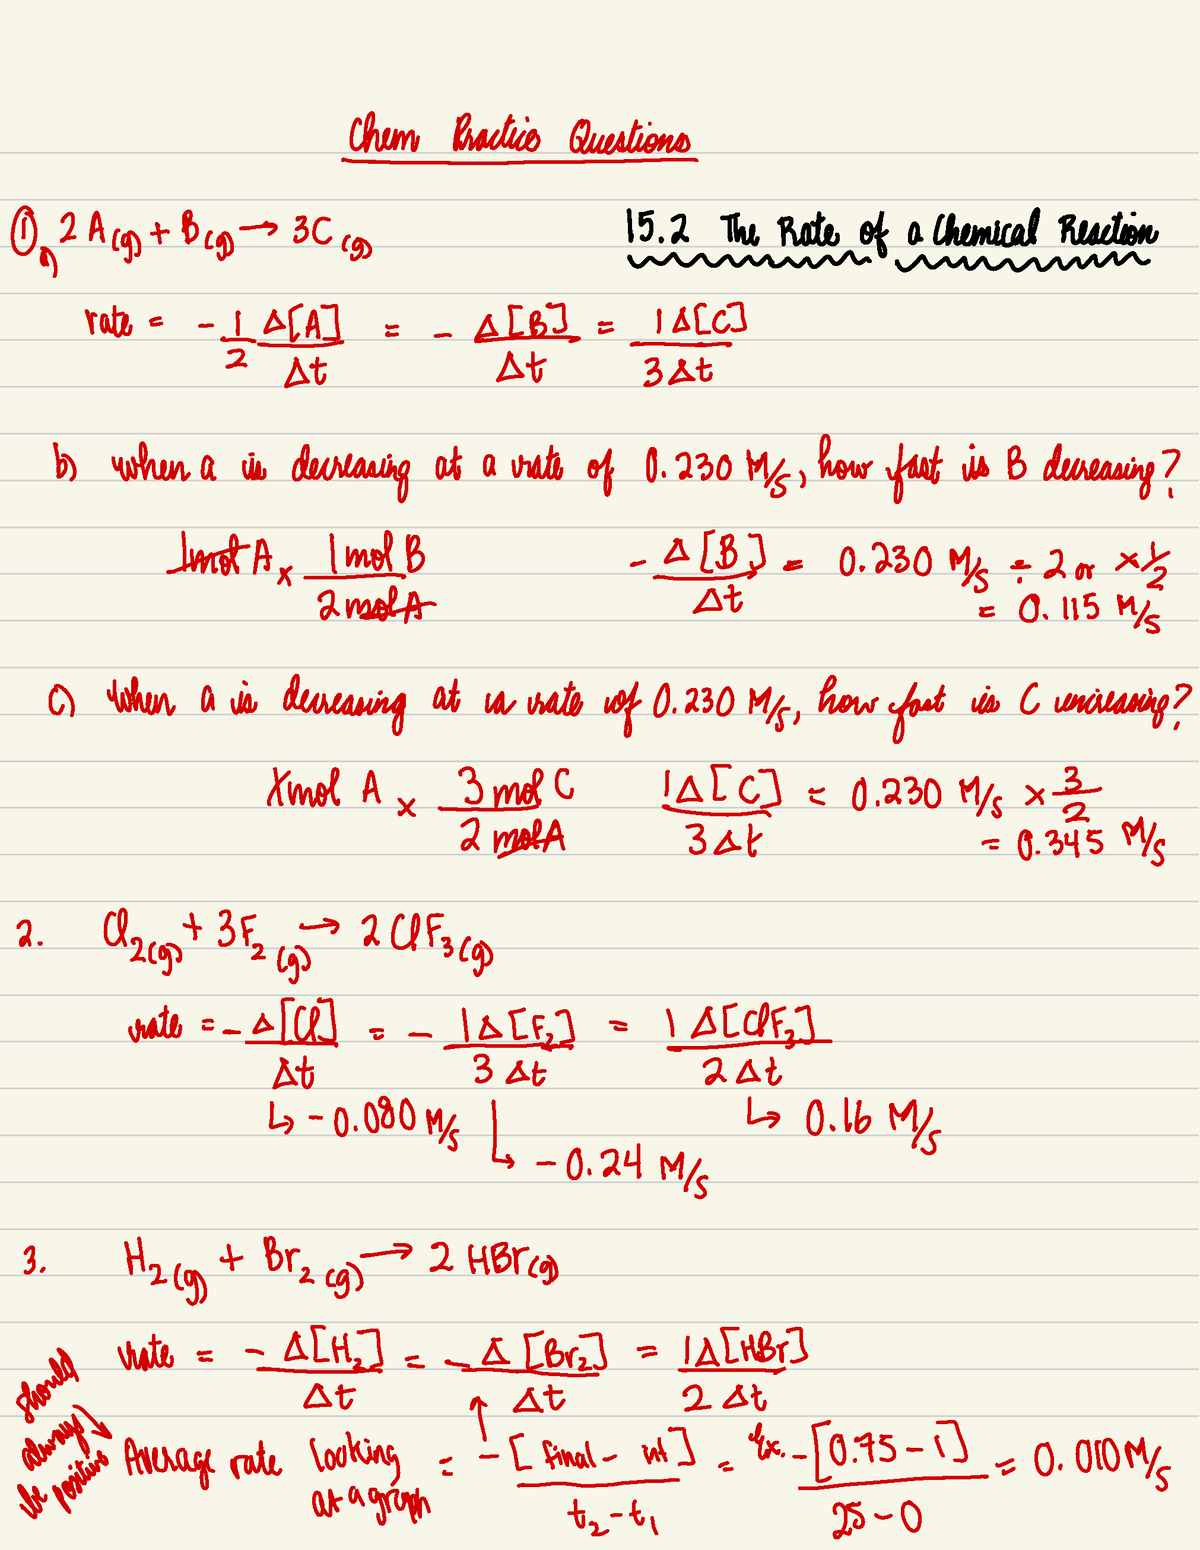 Chem Practice Questions
① a) 2 A(g) + B(g) → 3C(g)
15.2 The Rate of a Chemical Reaction
rate = - 1/2 Δ[A]/Δt = - Δ[B]/Δt = 1Δ[C]/3Δt
b) when a is decreasing at a rate of 0.230 M/s, how fast is B decreasing?
1mol A x 1 mol B/2 mol A
- Δ[B]/Δt = 0.230 M/s ÷ 2 or x 1/2
= 0.115 M/s
c) when a is decreasing at a rate of 0.230 M/s, how fast is C increasing?
mol A x 3 mol C/2 mol A
1Δ[C]/3Δt = 0.230 M/s x 3/2
= 0.345 M/s
2. Cl2(g) + 3F2(g) → 2 ClF3(g)
rate = - Δ[Cl]/Δt = - 1Δ[F2]/3Δt = 1Δ[ClF3]/2Δt
↳ -0.080 M/s
↳ -0.24 M/s
↳ 0.16 M/s
3. H2(g) + Br2(g) → 2 HBr(g)
rate = - Δ[H2]/Δt = - Δ[Br2]/Δt = 1Δ[HBr]/2Δt
should
always
be positive
Average rate looking
at a graph
= -[final - int]/t2-t1 = Ex. -[0.75-1]/25-0 = 0.010 M/s